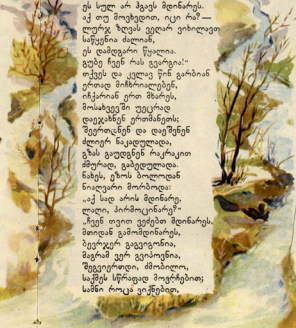 ეს სულ არ ჰგავს მდინარეს.
აქ თუ მოვხვდით, იცი რა?—
ლურჯ ზღვას ვეღარ ვიხილავთ,
საწყენია ძალიან,
ეს დამდგარი წყალია.
გუბე ჩვენ რას გვარგია!“
თქვეს და კვლავ წინ გარბიან
ერთად მიჩხრიალებენ,
იჩქარიან ერთ მხარეს,
მოსახვევში უეცრად
დაეჯახნენ ერთმანეთს;
შეერთცნენ და დაეშვნენ
ძლიერ ნაკადულადა,
გზას გაუდგნენ რაკრაკით
ძმურად, გაბედულადა.
ნახეს, ეზოს ბოლოდან
ნიაღვარი მორბოდა:
„აქ სად არის მდინარე,
ლაღი, პირმოცინარე?“
„ჩვენ თვით ვეძებთ მდინარეს,
მთიდან გამომდინარეს,
ბევრჯერ გაგვიგონია,
მაგრამ ვერ გვიპოვნია,
შეგვიერთდი, ძმობილო,
საქმეს სწრაფად მოვრჩებით;
სამნი როცა ვიქნებით,